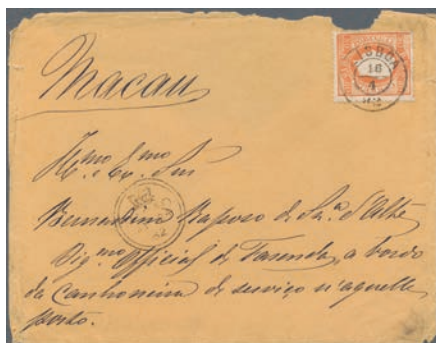 Macau
LISBOA
16
4
Illmo. Exmo. Snr
Bernardino Raposo de Sza. d'Alte
Digmo. Official de Fazenda, a bordo
da canhoneira de serviço n'aquelle
porto.